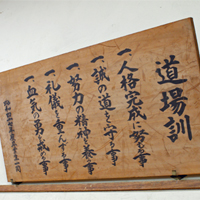 道場訓
一、人格完成に努る事
一、誠の道を守る事
一、努力の精神を養う事
一、礼儀を重んずる事
一、血気の勇を戒る事